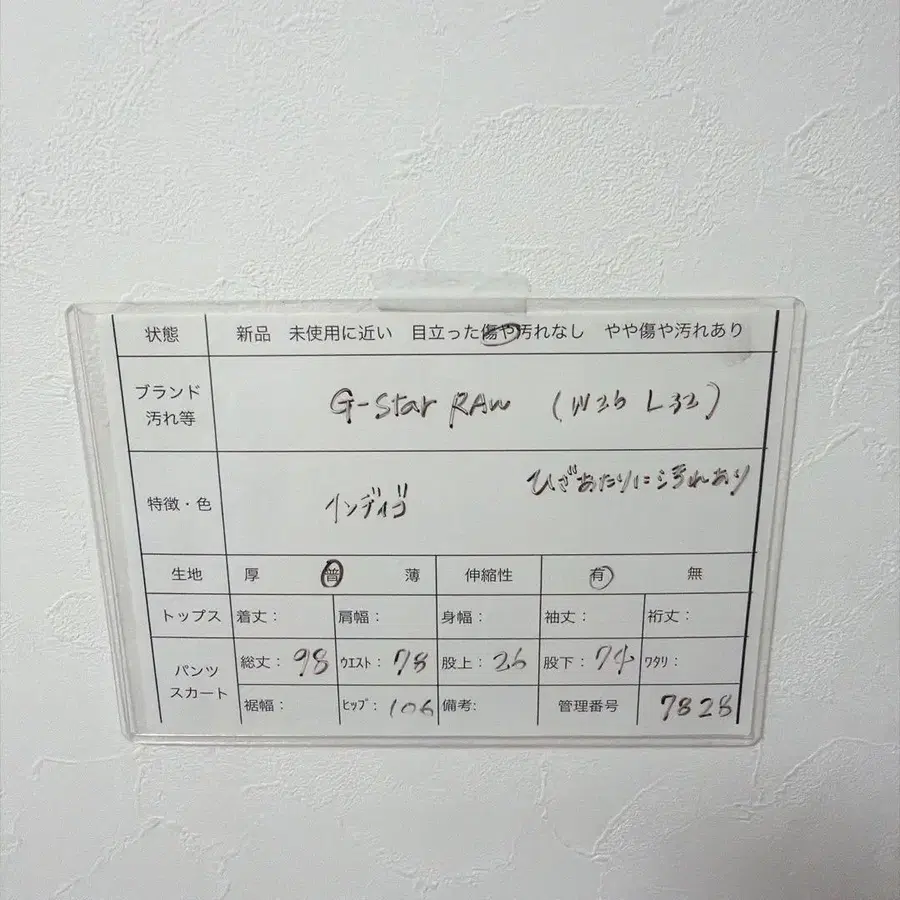 状態 新品 未使用に近い 目立った傷や汚れなし やや傷や汚れあり
ブランド
汚れ等
G-Star RAW (W26 L32)
特徴・色
インディゴ
ひざあたりに汚れあり
生地 厚 普 薄 伸縮性 有 無
トップス 着丈: 肩幅: 身幅: 袖丈: 裄丈:
パンツ
スカート
総丈: 98 ウエスト: 78 股上: 26 股下: 74 ワタリ:
裾幅: ヒップ: 106 備考: 管理番号 7828